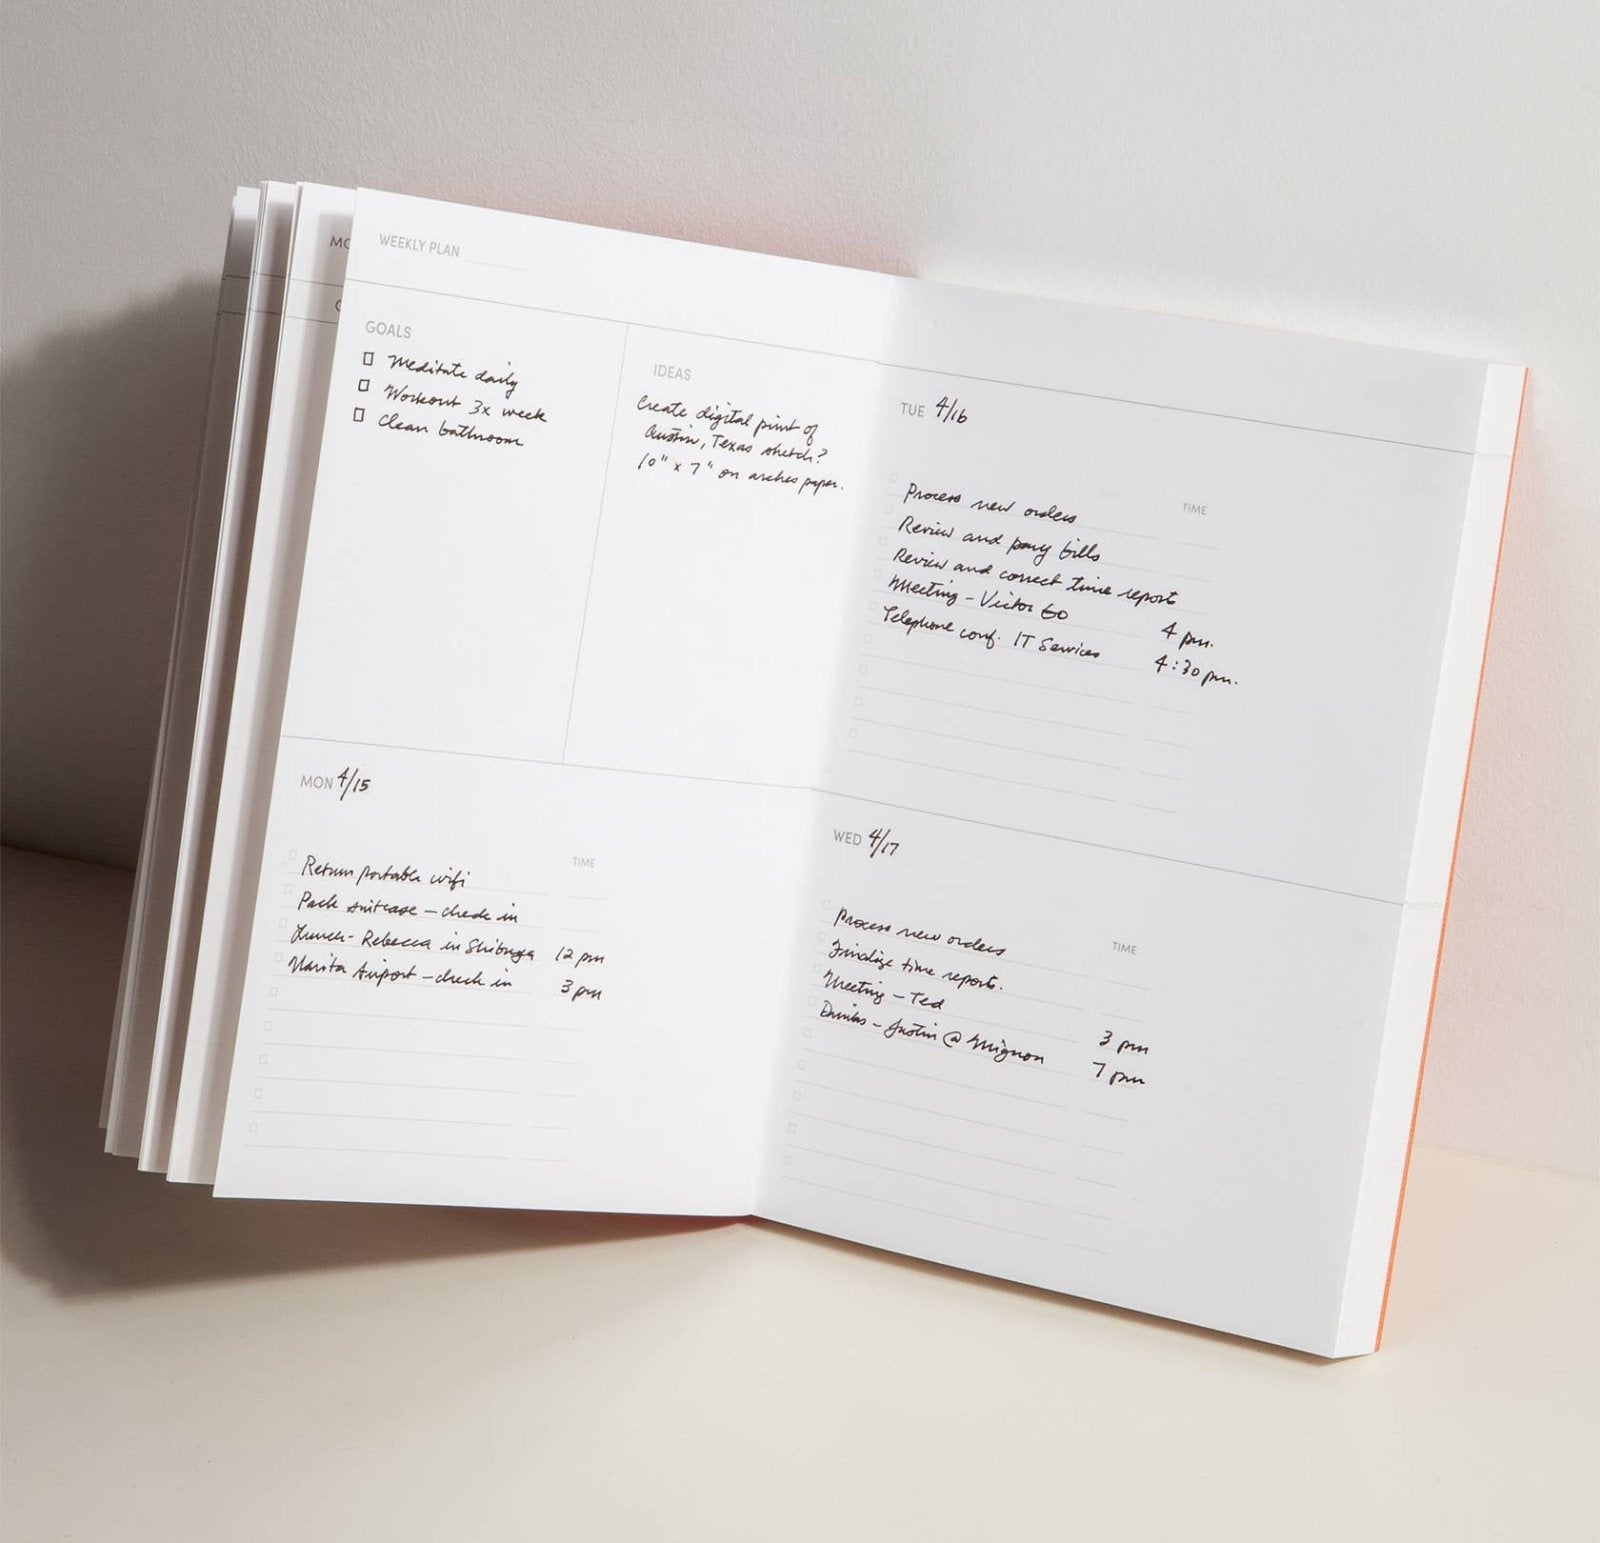 MO
WEEKLY PLAN
GOALS
Meditate daily
Workout 3x week
Clean bathroom
IDEAS
Create digital print of
Austin, Texas sketch?
10" x 7" on arches paper.
MON 4/15
TIME
Return portable wifi
Pack suitcase – check in
Lunch - Rebecca in Shibuya 12 pm
Narita Airport – check in 3 pm
TUE 4/16
TIME
Process new orders
Review and pay bills
Review and correct time report
Meeting – Victor Go 4 pm.
Telephone conf. IT Services 4:30 pm.
WED 4/17
TIME
Process new orders
Finalize time reports.
Meeting – Ted 3 pm
Drinks – Justin @ Mignon 7 pm